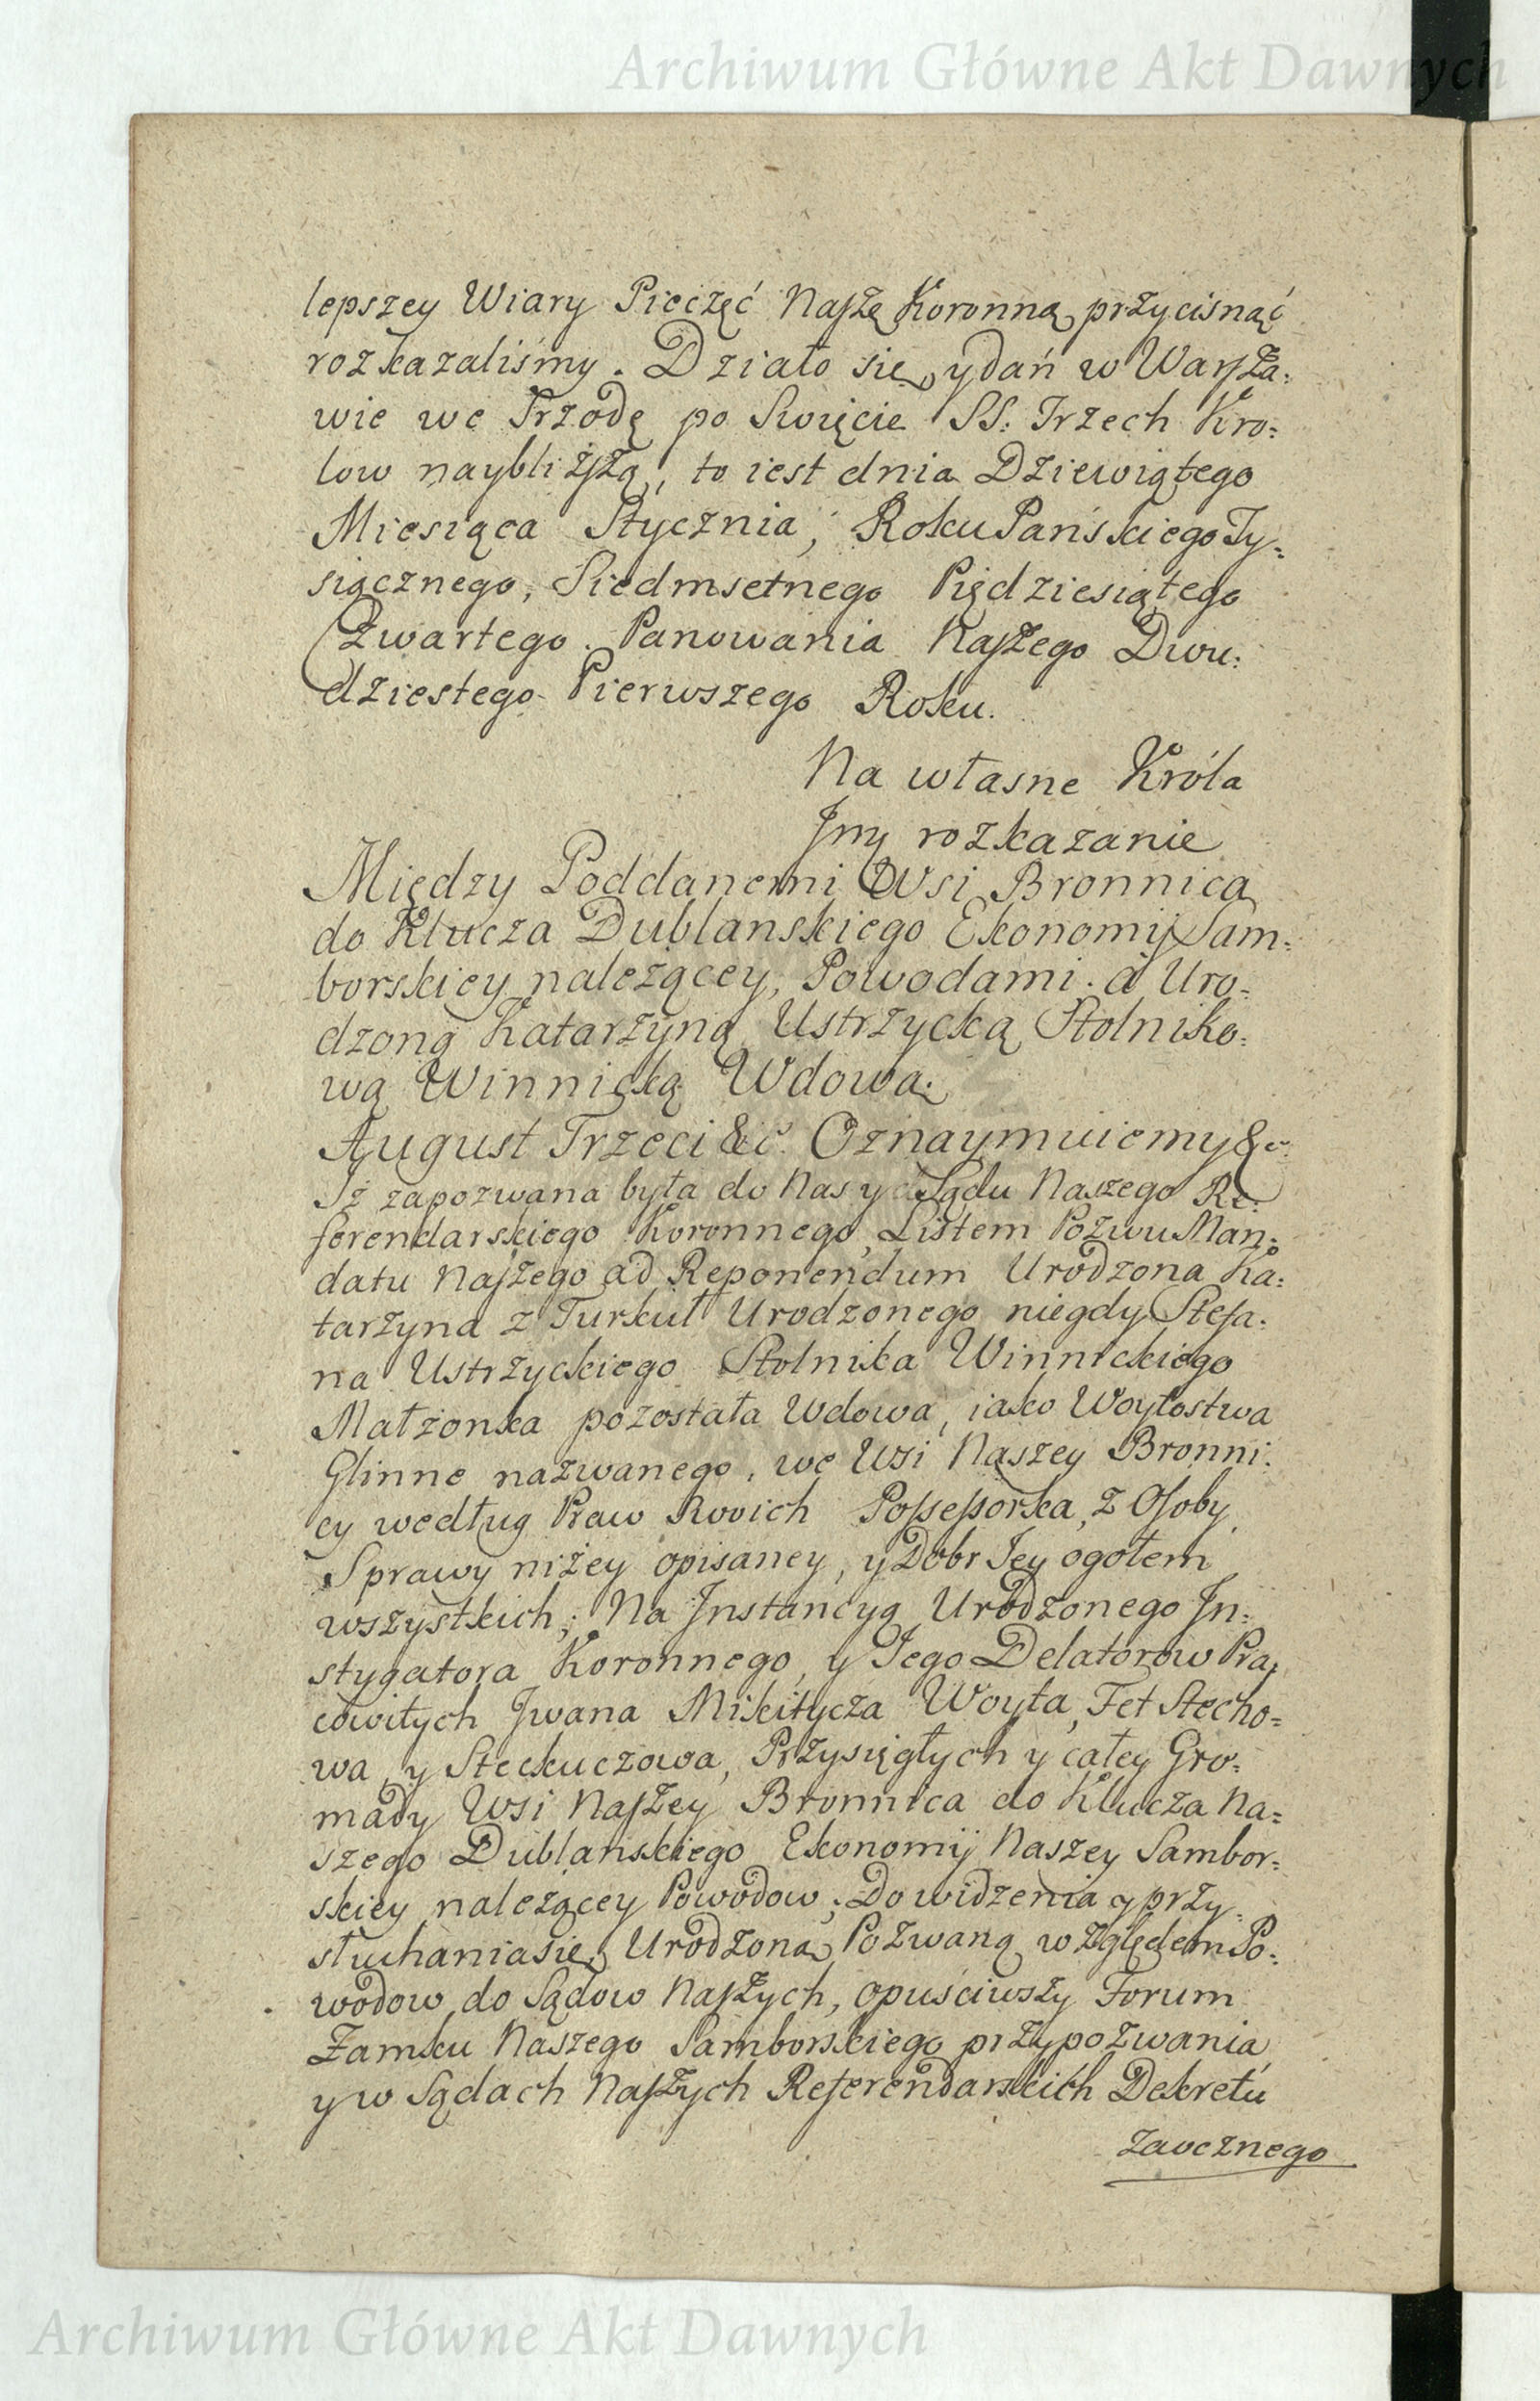 Archiwum Główne Akt Dawnych
lepszey Wiary Pieczęć Naszę Koronną przycisnąć
rozkazaliśmy. Działo się, y dań w Warsza:
wie we Srzodę po Swięcie SS: Trzech Kro:
low naybliższą, to iest dnia Dziewiątego
Miesiąca Stycznia, Roku Pańskiego Ty:
siącznego, Siedmsetnego Piędziesiątego
Czwartego. Panowania Naszego Dwu:
dziestego Pierwszego Roku.
Na własne Króla
Jmy rozkazanie
Między Poddanemi Wsi Bronnica
do Klucza Dublanskiego Ekonomij Sam:
borskiey należącey, Powodami. a Uro:
dzoną Katarzyną Ustrzycką Stolniko:
wą Winnicką Wdową.
August Trzeci &c. Oznaymuiemy &c
Iż zapozwana była do Nas y Sądu Naszego Re:
ferendarskiego Koronnego, Listem Pozwu Man:
datu Naszego ad Reponendum Urodzona Ka:
tarzyna z Turkuł Urodzonego niegdy Stefa:
na Ustrzyckiego Stolnika Winnickiego
Małżonka pozostała Wdowa, iako Woytostwa
Glinne nazwanego, we Wsi Naszey Bronni:
cy według Praw Swoich Possessorka, z Osoby
Sprawy niżey opisaney, y Dobr Jey ogołem
wszystkich; Na Jnstancyą Urodzonego Jn:
stygatora Koronnego, y Jego Delatorow Pra:
cowitych Jwana Mikitycza Woyta, Fet Stecho:
wa, y Steckuczowa, Przysięgłych y całey Gro:
mady Wsi Naszey Bronnica do Klucza Na:
szego Dublanskiego Ekonomij Naszey Sambor:
skiey należącey Powodow; Do widzenia y przy:
słuchania się, Urodzoną Pozwaną względem Po:
wodow do Sądow Naszych, opuściwszy Forum
Zamku Naszego Samborskiego przypozwania,
y w Sądach Naszych Referendarskich Dekretu
zaocznego
Archiwum Główne Akt Dawnych